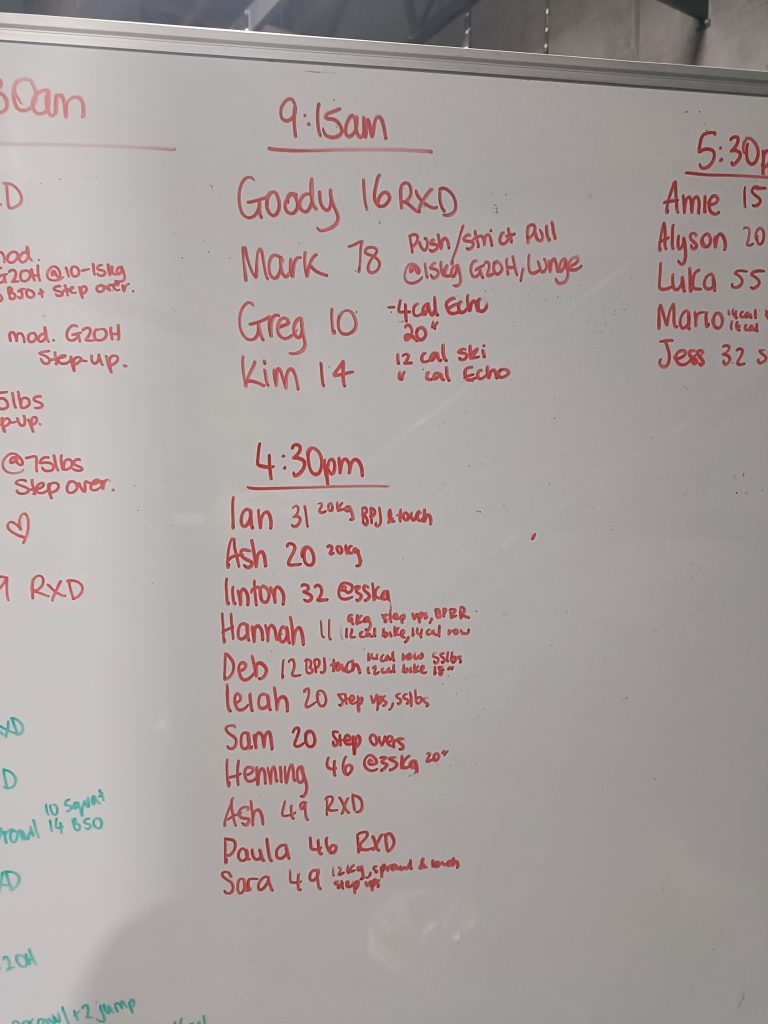 30am
D
mod.
G2OH @10-15kg
BJO + Step over.
mod. G2OH
Step-up.
5lbs
p-up.
@75lbs
Step over.
9 RXD
XD
D
10 Squat
Prowl 14 BSO
XD
2OH
prowl + 2 jump
9:15am
Goody 16 RXD
Mark 78 Push/Strict Pull
@15kg G2OH, Lunge
Greg 10 -4cal Echo
20"
Kim 14 12 cal ski
" cal Echo
4:30pm
Ian 31 20kg BPJ & touch
Ash 20 20kg
linton 32 @35kg
Hannah 11 9kg step ups, BPER
12 cal bike, 14 cal row
Deb 12 BPJ touch 14cal row 55lbs
12cal bike 18"
leiah 20 Step ups, 55lbs
Sam 20 Step overs
Henning 46 @35kg 20"
Ash 49 RXD
Paula 46 RXD
Sara 49 12kg, sprawl & touch
step ups
5:30p
Amie 15
Alyson 20
Luka 55
Mario
Jess 32 S